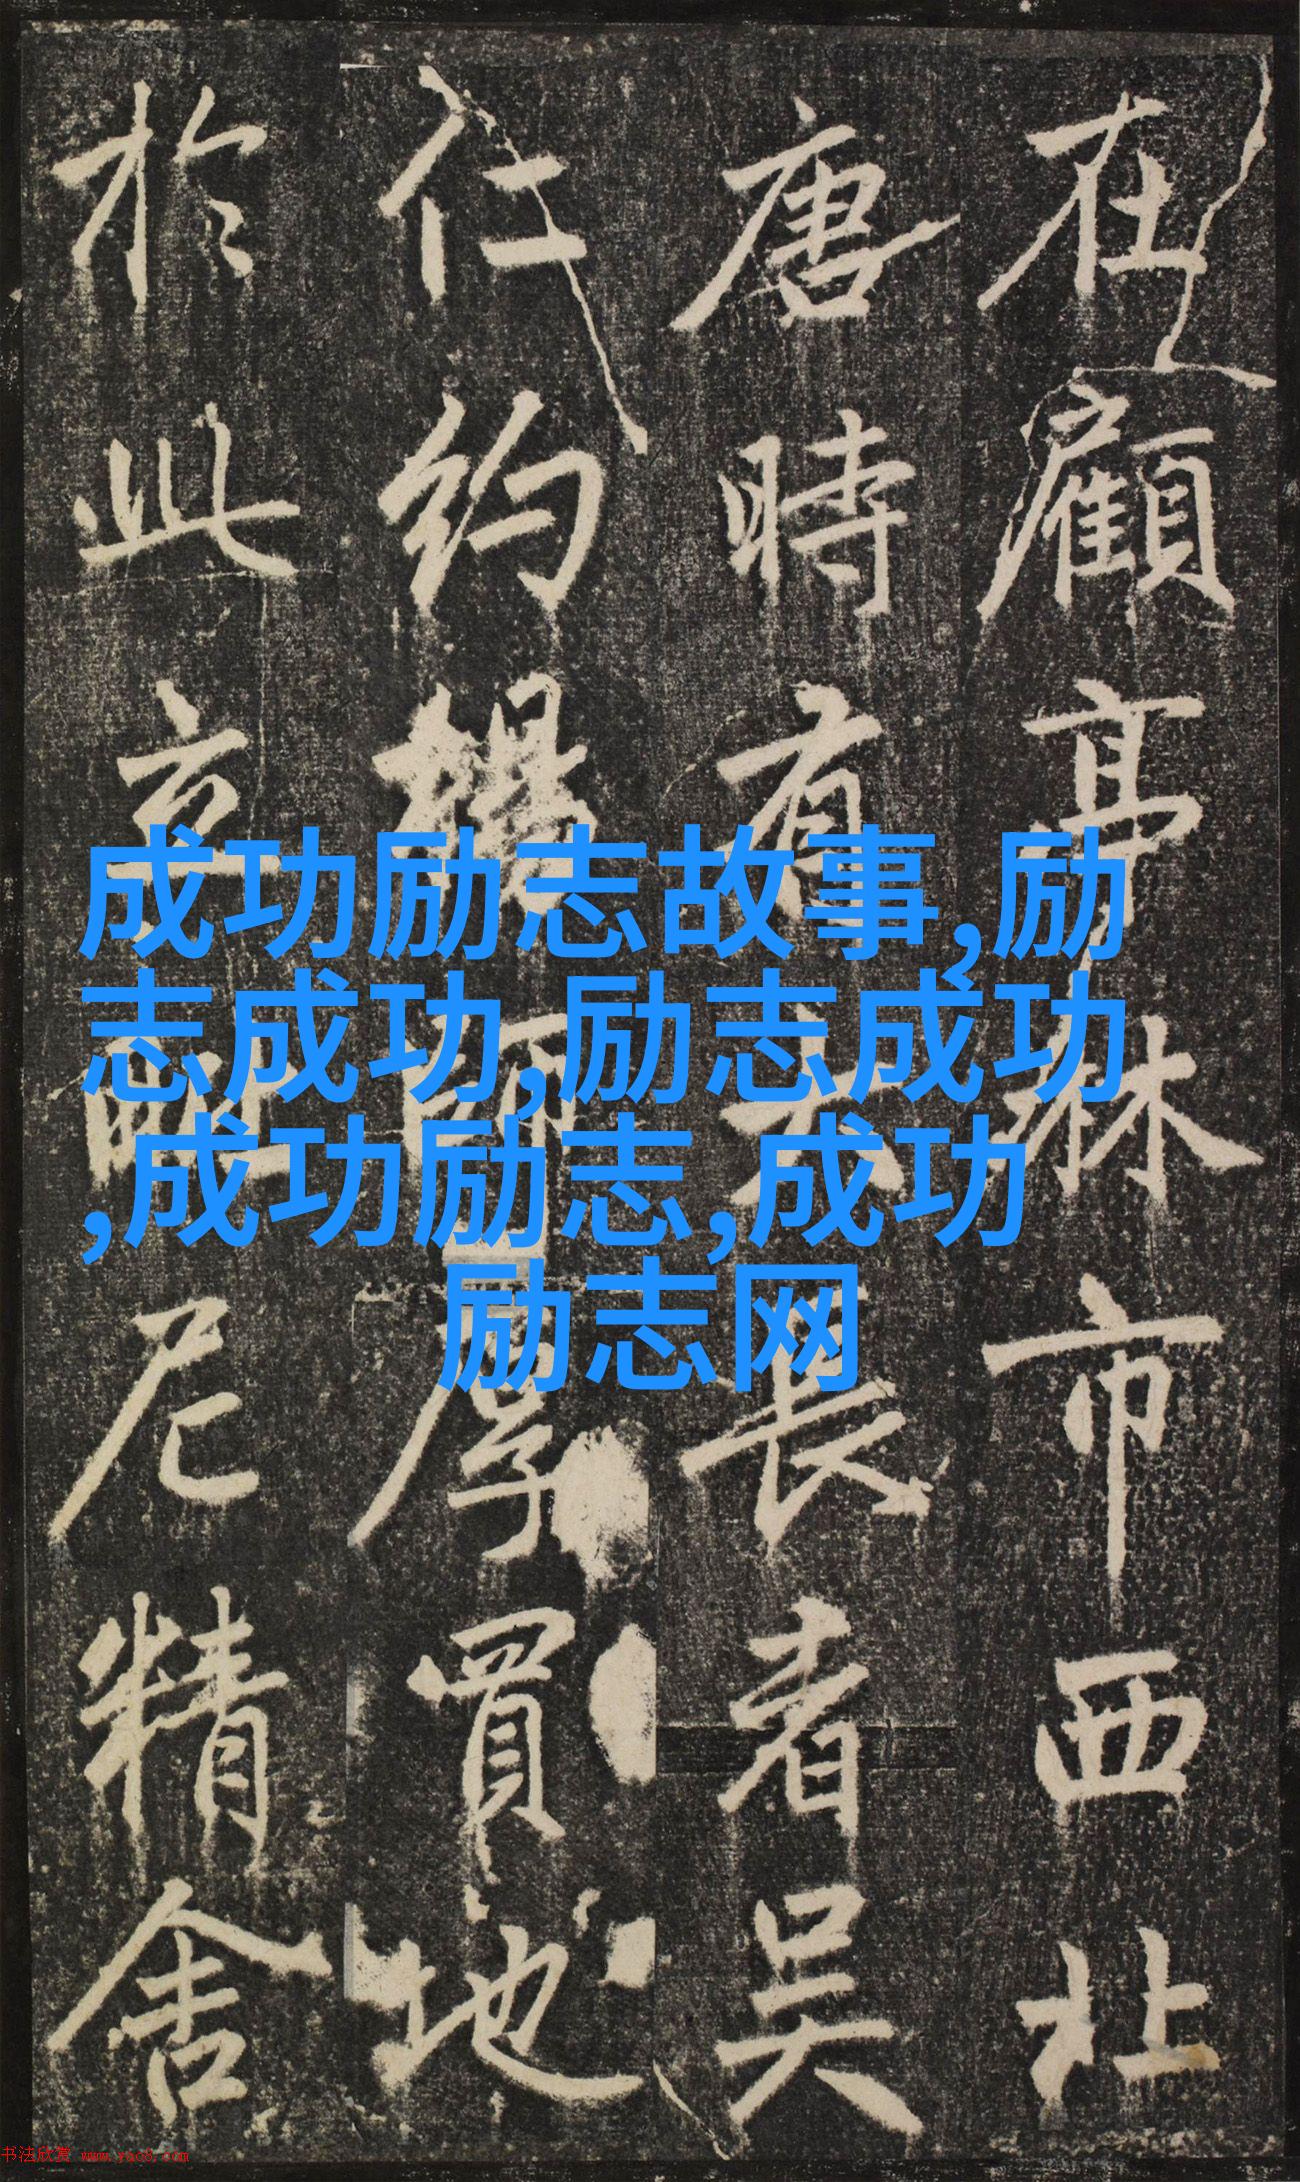 在顧亭林市西北
唐時有大長者吳
仁約厚買地
於此立毗尼精舍
成功励志故事,励
志成功,励志成功
,成功励志,成功
励志网
书法欣赏 www.yac8.com